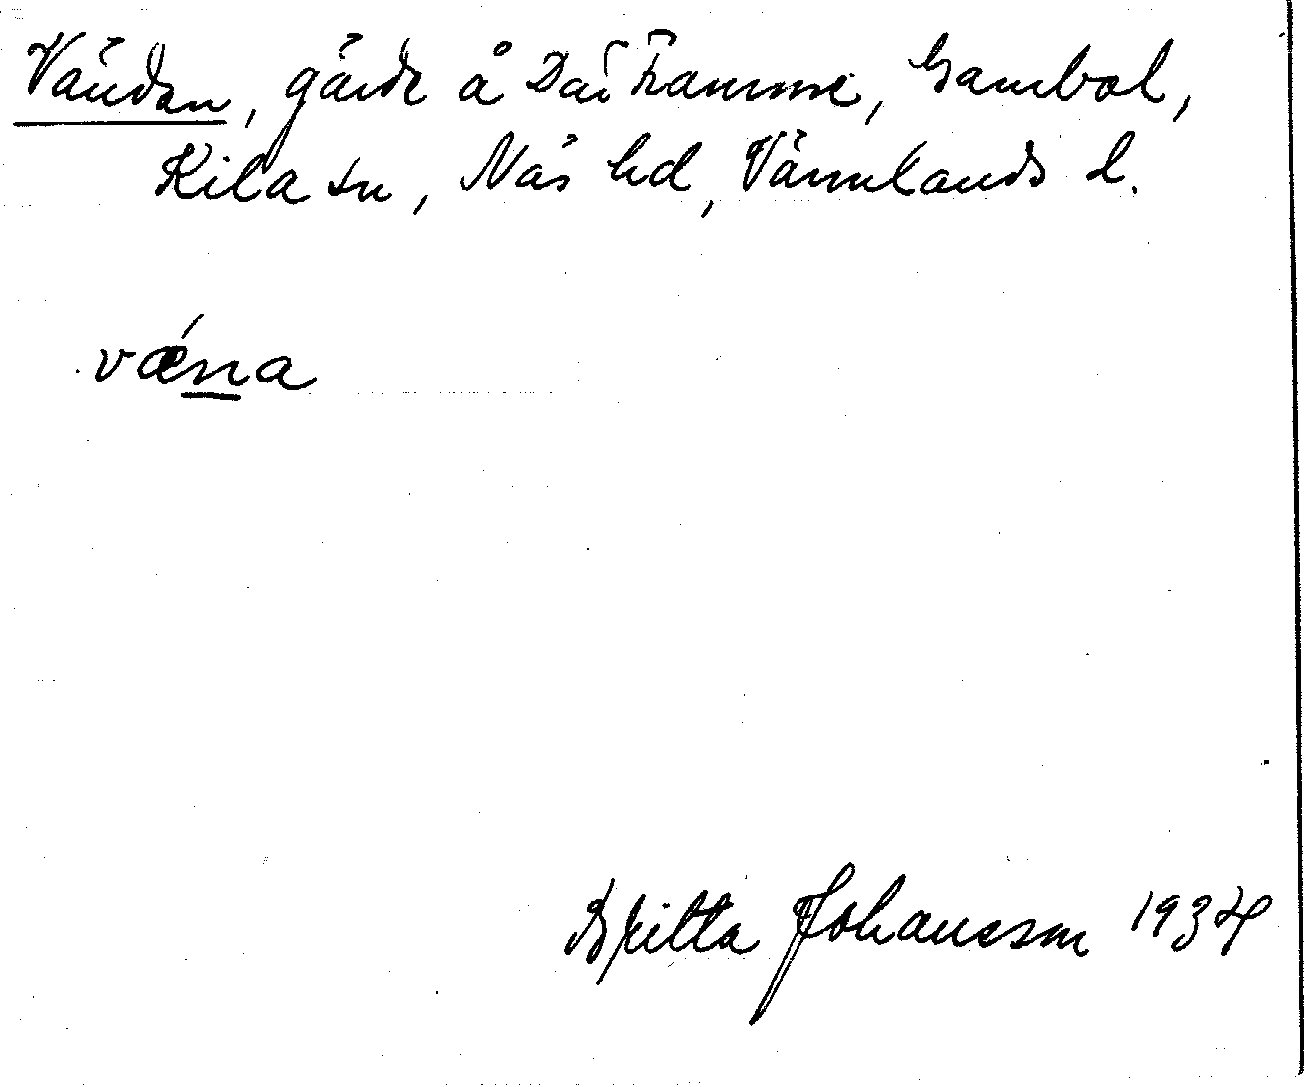 Vändan, gärde å Där hamme, Gambol,
Kila sn, Näs hd, Värmlands l.
vǽna
Britta Johansson 1934